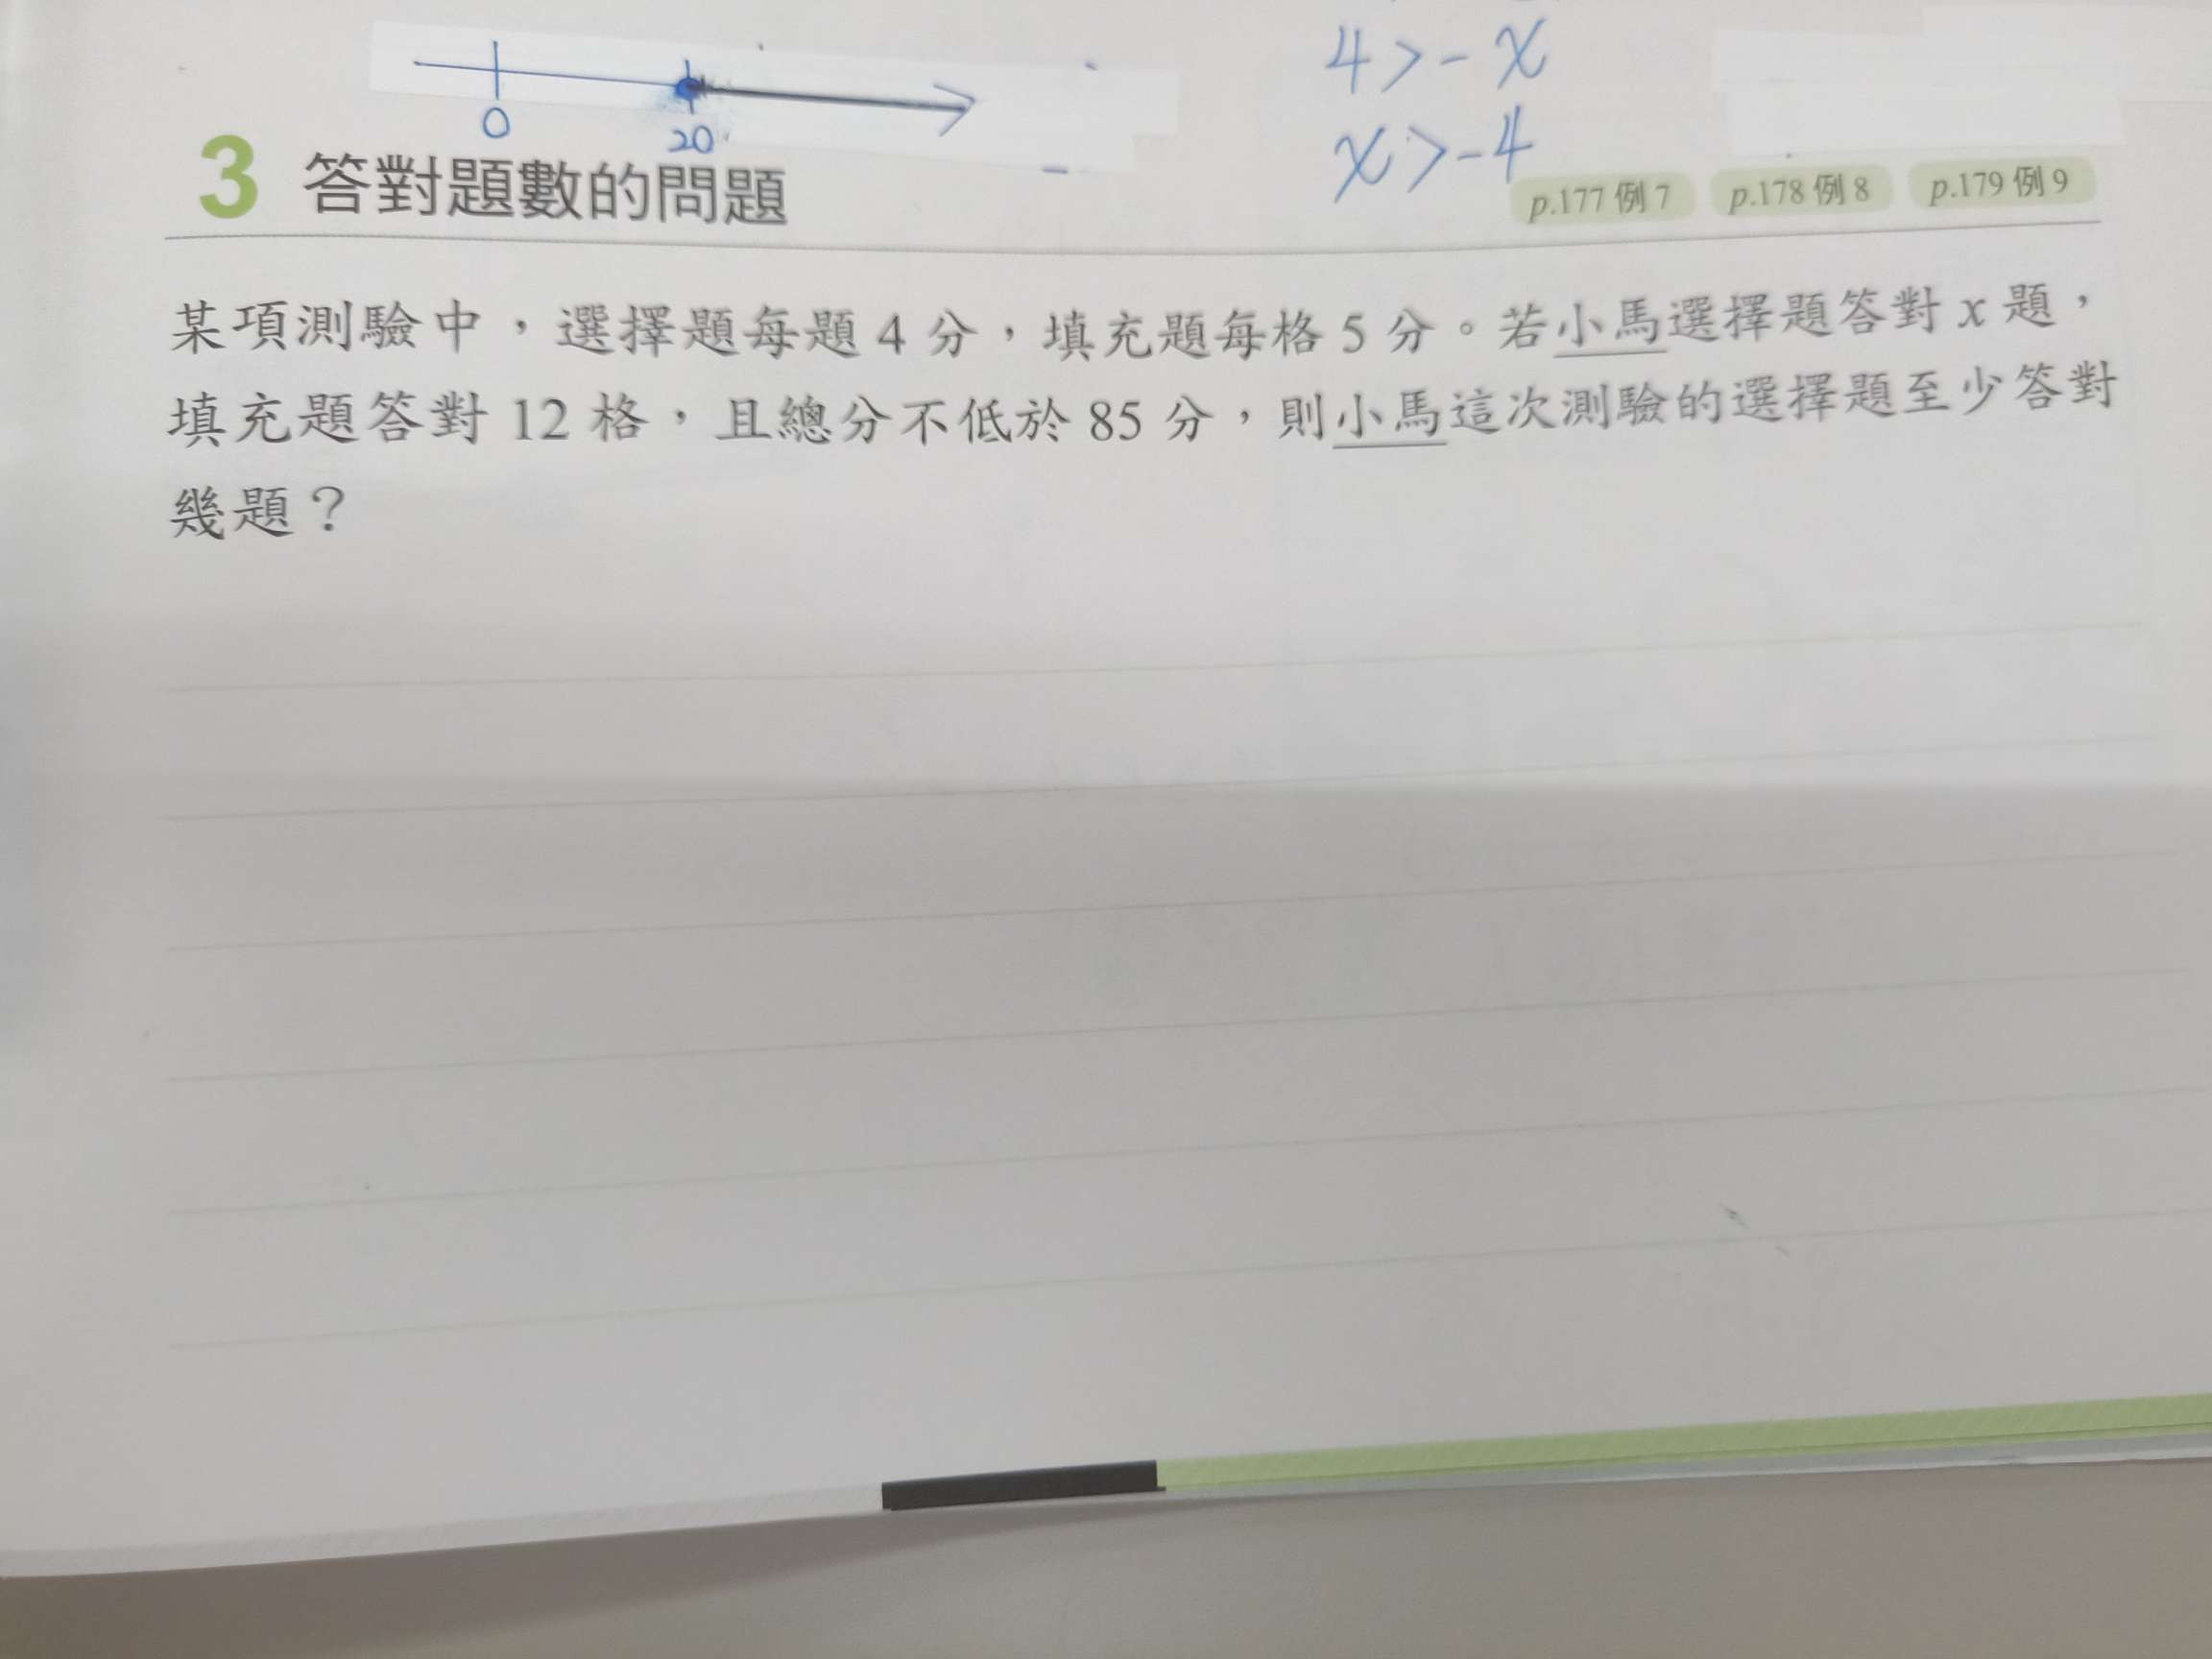 4>-x
0
20
x>-4
3 答對題數的問題
p.177 例 7 p.178 例 8 p.179 例 9
某項測驗中，選擇題每題 4 分，填充題每格 5 分。若小馬選擇題答對 x 題，
填充題答對 12 格，且總分不低於 85 分，則小馬這次測驗的選擇題至少答對
幾題？